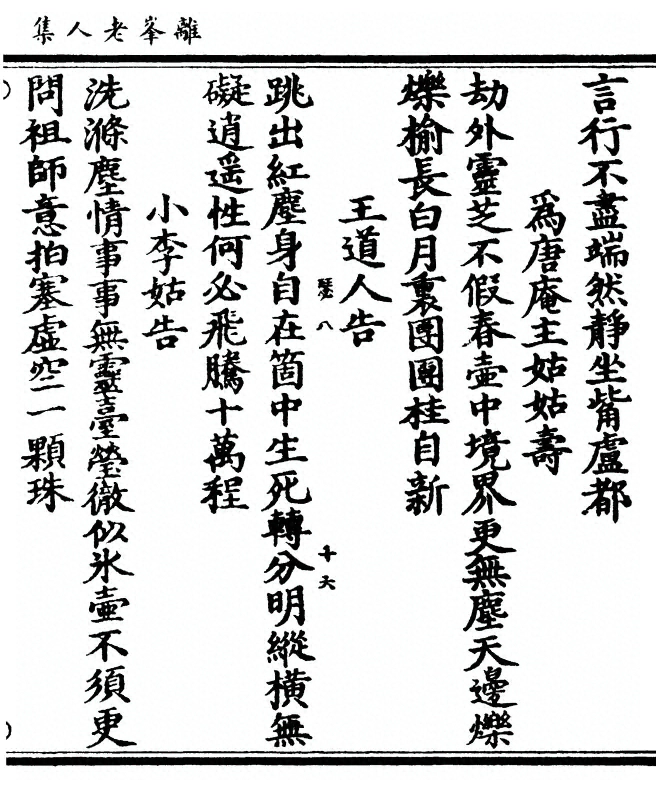 離峯老人集
言行不盡端然靜坐觜盧都
爲唐庵主姑姑壽
劫外靈芝不假春壺中境界更無塵天邊爍
爍榆長白月裏團團桂自新
王道人告
瑟八
十六
跳出紅塵身自在箇中生死轉分明縱橫無
礙逍遥性何必飛騰十萬程
小李姑告
洗滌塵情事事無靈臺瑩徹似氷壺不須更
問祖師意拍塞虛空一顆珠